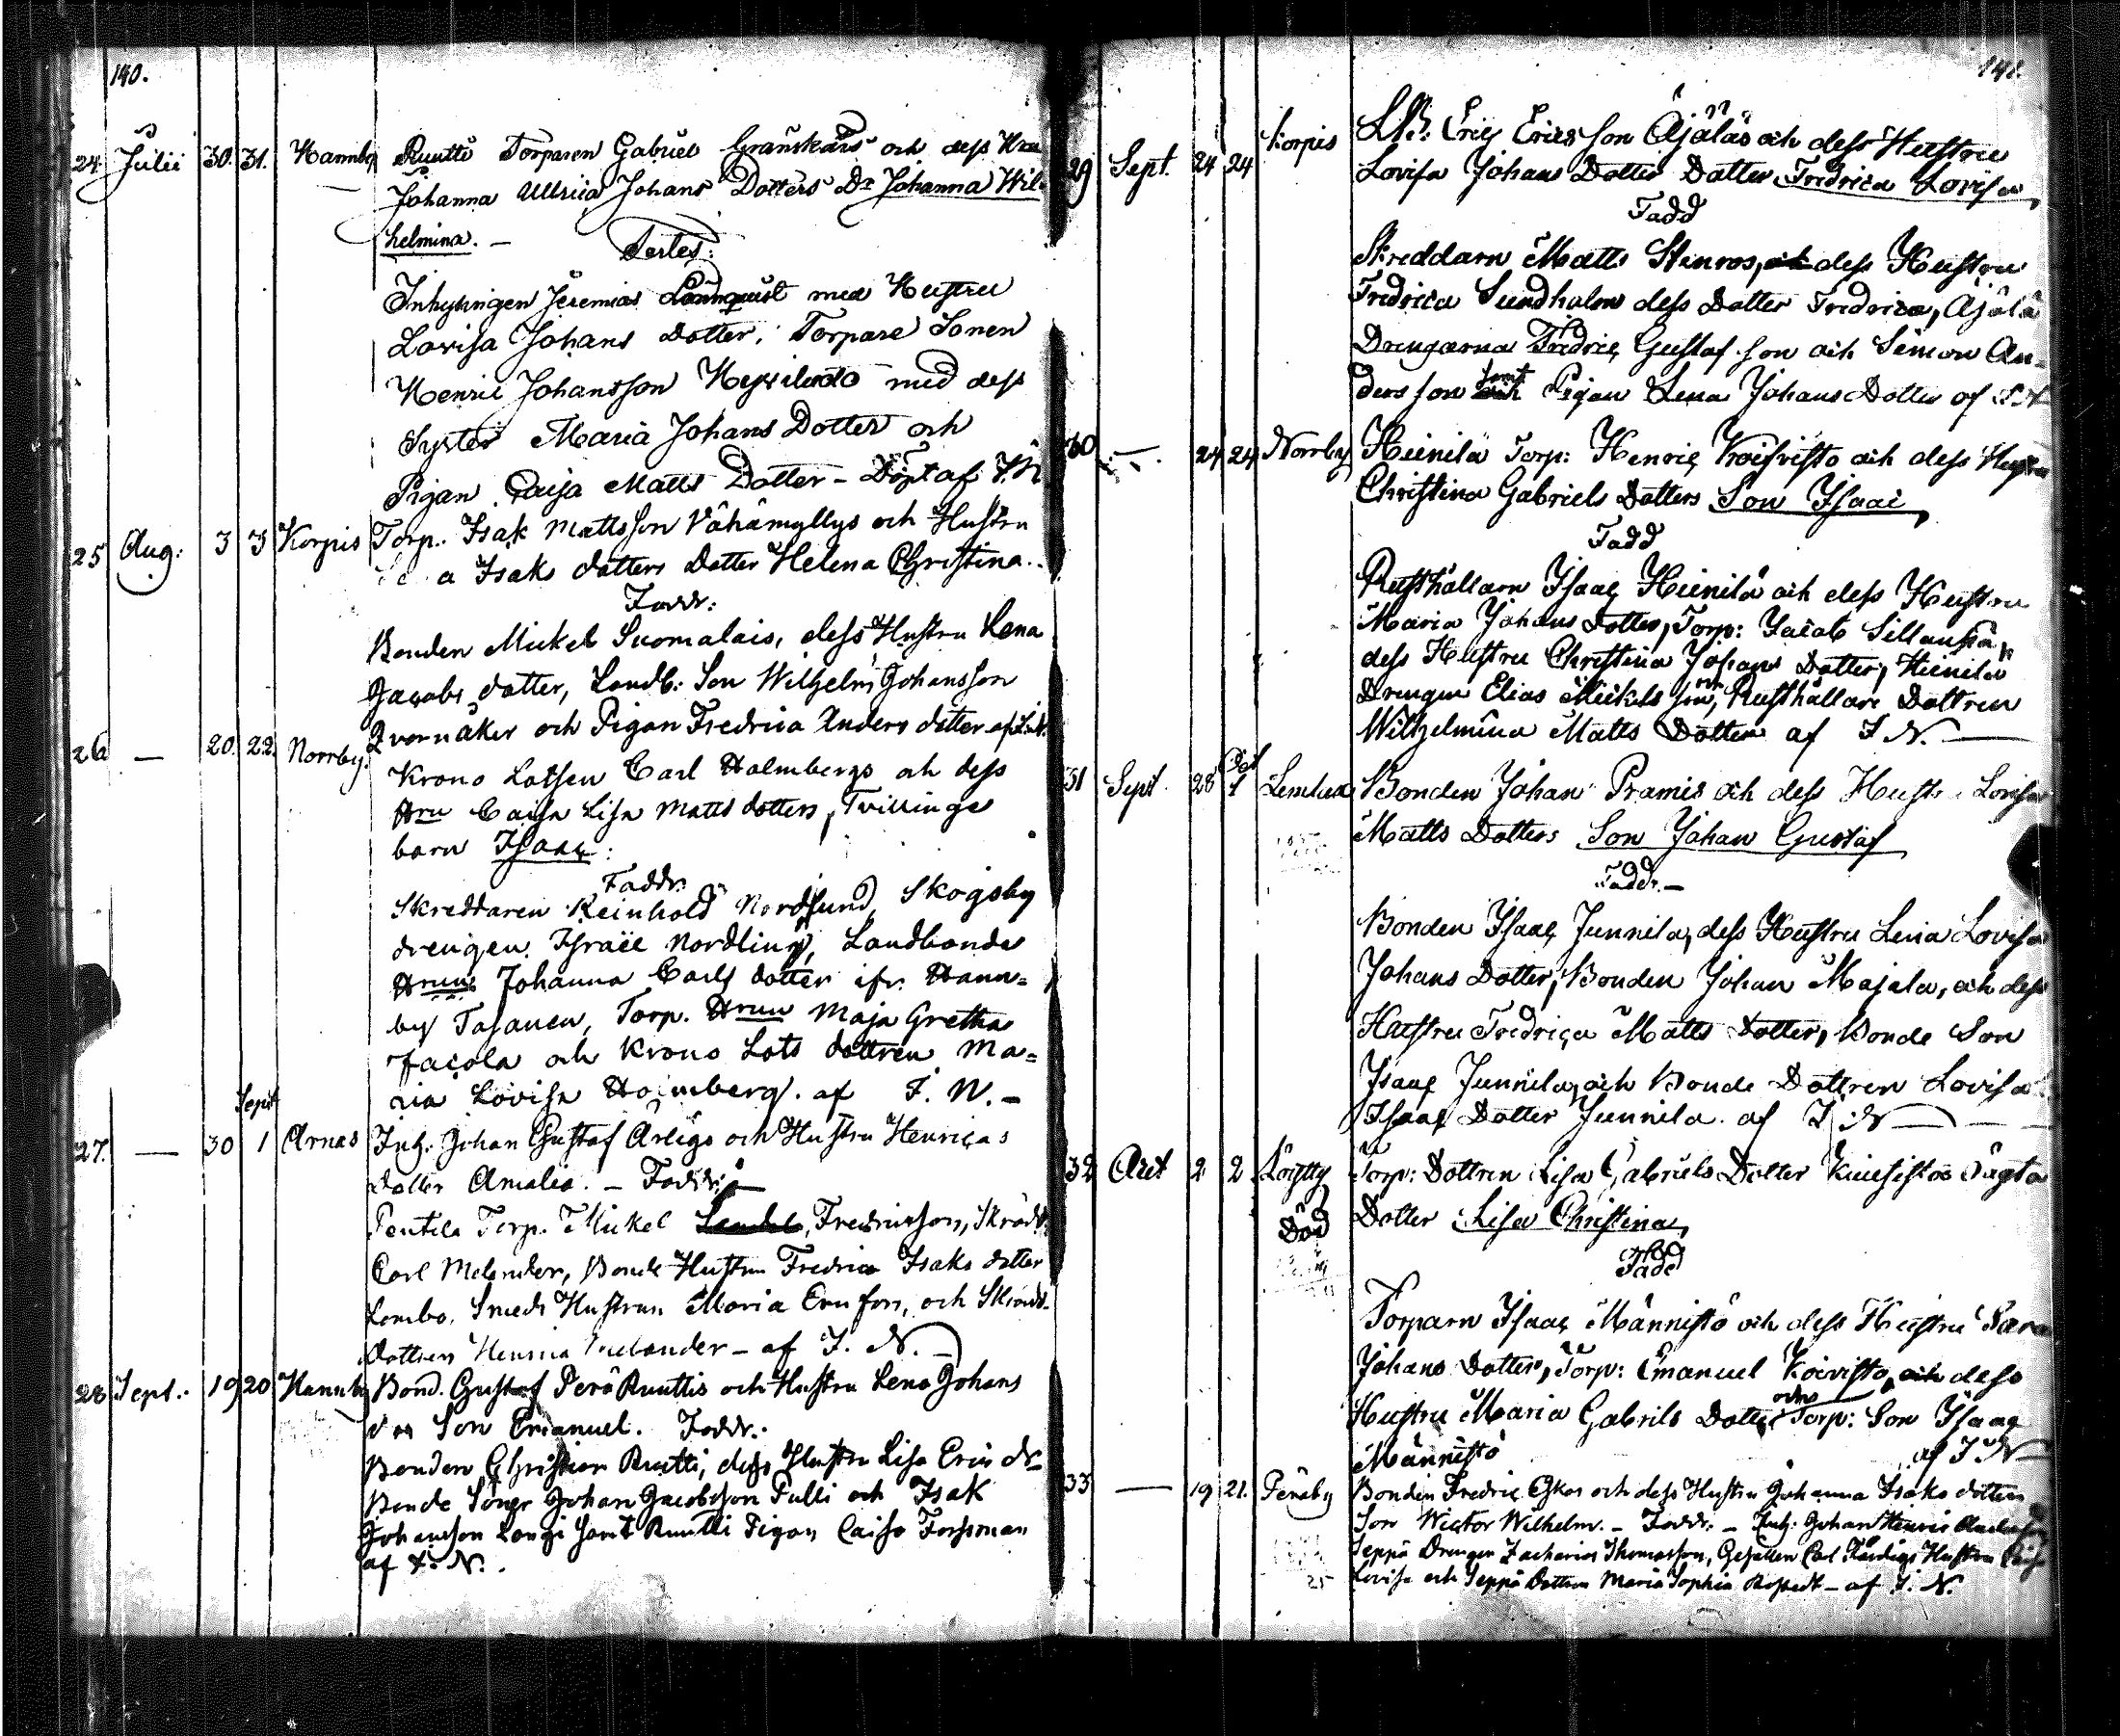 140.
24 Julii 30. 31. Hannby Ruutti Torparen Gabriel Granskärs och dess Hru
Johanna Ullrica Johans Dotters Dr Johanna Wil-
helmina. — Testes:
Inhysingen Jeremias Lönnquist med Hustru
Lovisa Johans Dotter, Torpare Sonen
Henric Johansson med dess
Syster Maria Johans Dotter och
Pigan Caisa Matts Dotter - Döpt af
25 Aug: 3 3 Korpis Torp. Isak Mattsson Vähämyllys och Hustru
a Isaks dotters Dotter Helena Christina.
Faddr:
Bonden Mickel Suomalais, dess Hustru Lena
Jacobs dotter, Landb: Son Wilhelm Johansson
Qvarnåker och Pigan Fredrica Anders dotter af
26 — 20. 22. Norrby.
Krono Lotsen Carl Holmbergs och dess
Hru Caisa Lisa Matts dotters, Tvillinge
barn Isaac:
Faddr.
Skreddaren Reinhold Nordlund, Skogsby
drengen Israel Nordling, Landbonde
Hrun Johanna Carls dotter ifr. Hann=
by Tasanen, Torp. Hrun Maja Gretha
Jacola och Krono Lots dottren Ma=
ria Lovisa Holmberg. af I. N. —
Sept
27. — 30 1 Arnäs Inh. Johan Gustaf Arligs och Hustru Henricas
dotter Amalia. — Faddr:
Pentilä Torp. Mickel Fredriksson, Skrädd.
Carl Melender, Bonde Hustru Fredrica Isaks dotter
Lambo, Smeds Hustrun Maria Enefors, och Skrädd.
Dottren Henrica Melander — af I. N.
28 Sept. 19 20 Hannby Bond. Gustaf Perä Ruuttis och Hustru Lena Johans
Son Emanuel. Faddr.
Bonden Christian Ruutti, dess Hustru Lisa Erics dr
Bonde Söner Johan Jacobsson Pulli och Isak
Johansson Längi samt Ruutti Pigan Caisa Forssman
af I. N.
141.
29 Sept. 24 24 Korpis Ldb: Eric Ericsson Äjäläs och dess Hustru
Lovisa Johans Dotter Dotter Fredrica Lovisa
Fadd
Skreddarn Matts Stenros, och dess Hustru
Fredrica Sundholm dess Dotter Fredrica, Äjälä
Drengarna Fredric Gustafson och Simon An-
dersson samt Pigan Lena Johans Dotter af I. N
30 — 24 24 Norrby Heinilä Torp: Henric Koivisto och dess Hustru
Christina Gabriels Dotters Son Isaac
Fadd
Rusthållarn Isaac Heinilä och dess Hustru
Maria Johans Dotter, Torp: Jacob Sillanpää,
dess Hustru Christina Johans Dotter, Heinilä
Drengen Elias Mickelsson, och Rusthållare Dottren
Wilhelmina Matts Dotter af I N. —
Oct
31 Sept. 28 1 Lemhea Bonden Johan Pramis och dess Hustru Lovisa
Matts Dotters Son Johan Gustaf
Faddr. —
Bonden Isaac Junnila, dess Hustru Lena Lovisa
Johans Dotter, Bonden Johan Majala, och dess
Hustru Fredrica Matts Dotter, Bonde Son
Isaac Junnila, och Bonde Dottren Lovisa
Isaac Dotter Junnila. af I N —
32 Oct 2 2 Löytty Torp: Dottren Lisa Gabriels Dotter Kuusistos Oägta
Död Dotter Lisa Christina,
Fadd
Torparn Isaac Männistö och dess Hustru Sara
Johans Dotter, Torp: Emanuel Koivisto, och dess
Hustru Maria Gabriels Dotter Torp: Son Isaac
Männistö af I N
33 — 19 21. Peräby Bonden Fredric Eskos och dess Hustru Johanna Isaks dotters
Son Wictor Wilhelm. — Faddr. — Inh: Johan Henric
Seppä Drengen Zacharias Thomasson, Gesällen Carl Hustru Caisa
Lovisa och Seppä Dottren Maria Sophia — af I. N.